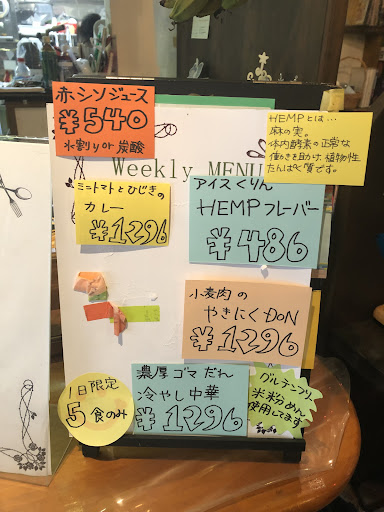 赤シソジュース
¥540
水割りor炭酸
HEMPとは…
麻の実。
体内酵素の正常な
働きを助け 植物性
たんぱく質です。
Weekly MENU
ミニトマトとひじきの
カレー
¥1296
アイスくりん
HEMPフレーバー
¥486
小麦肉の
やきにくDoN
¥1296
濃厚ゴマだれ
冷やし中華
¥1296
1日限定
5食のみ
グルテンフリー
米粉めん
使用してます